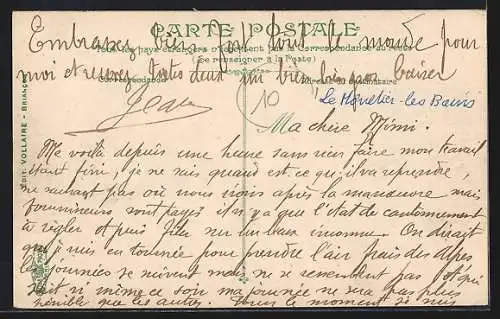 CARTE POSTALE
Tous les pays étrangers n'acceptent pas la Correspondance au recto
(Se renseigner à la Poste)
Correspondance
Adresse du destinataire
Embrassez bien fort tout le monde pour
moi et recevez toutes deux un bien gros baiser
Jean
10
Le Monetier-les Bains
Ma chère Mimi.
Me voilà depuis une heure sans rien faire mon travail
étant fini, je ne sais quand est-ce qu'il va reprendre,
ne sachant pas où nous irons après la manœuvre mais
fournisseurs sont payés il n'y a que l'état de cantonnement
à régler et puis filer sur un beau inconnu. On dirait
que je suis en tournée pour prendre l'air frais des Alpes
les journées se suivent mais ne se ressemblent pas et qui
sait si même ce soir ma journée ne sera pas plus
pénible que les autres. Pour le moment je suis
EDIT. VOLLAIRE - BRIANÇON